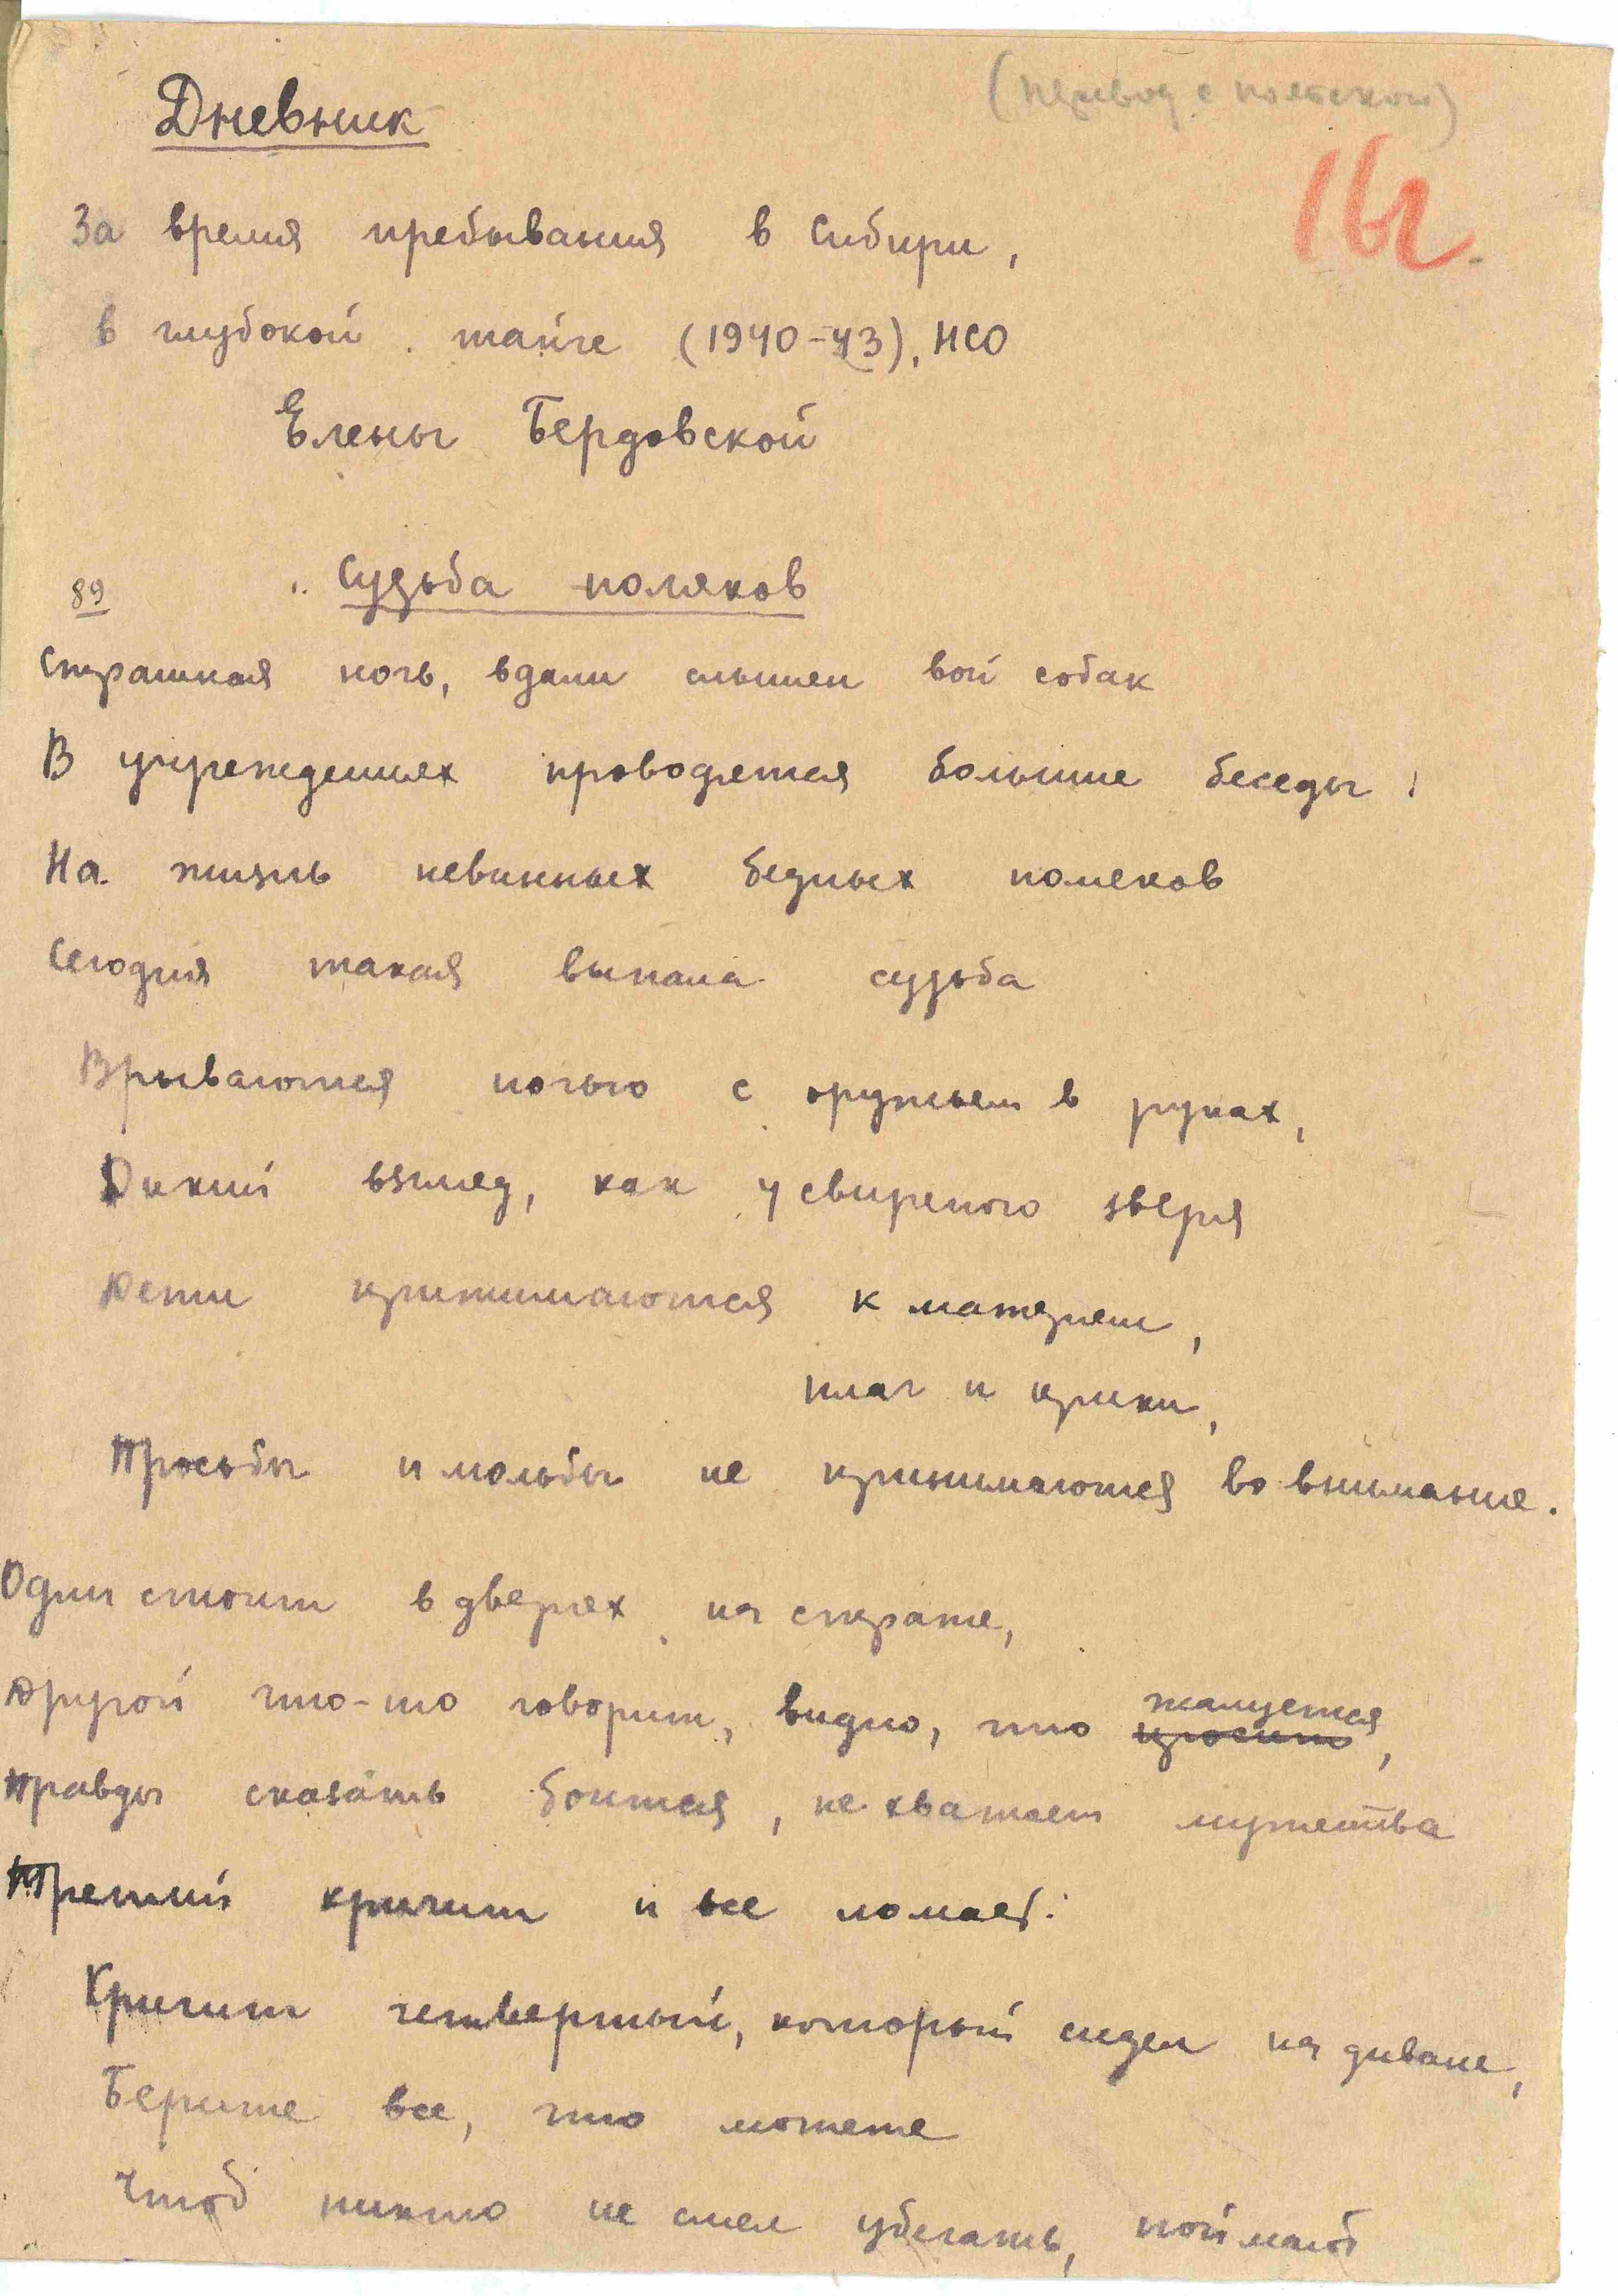 (перевод с польского)
Дневник
За время пребывания в Сибири,
в глубокой тайге (1940-43), НСО
Елены Бердовской
89
Судьба поляков
Страшная ночь, вдали слышен вой собак
В учреждениях проводятся большие беседы!
На жизнь невинных бедных поляков
Сегодня такая выпала судьба
Врываются ночью с оружьем в руках,
Дикий взгляд, как у свирепого зверя
Дети прижимаются к матерям,
плач и крики,
Просьбы и мольбы не принимаются во внимание.
Один стоит в дверях на страже,
Другой что-то говорит, видно, что просит жалуется,
Правды сказать боится, не хватает мужества
Третий кричит и все ломает:
Кричит четвертый, который сидел на диване,
Берите все, что можете
Чтоб никто не смел убегать, поймают